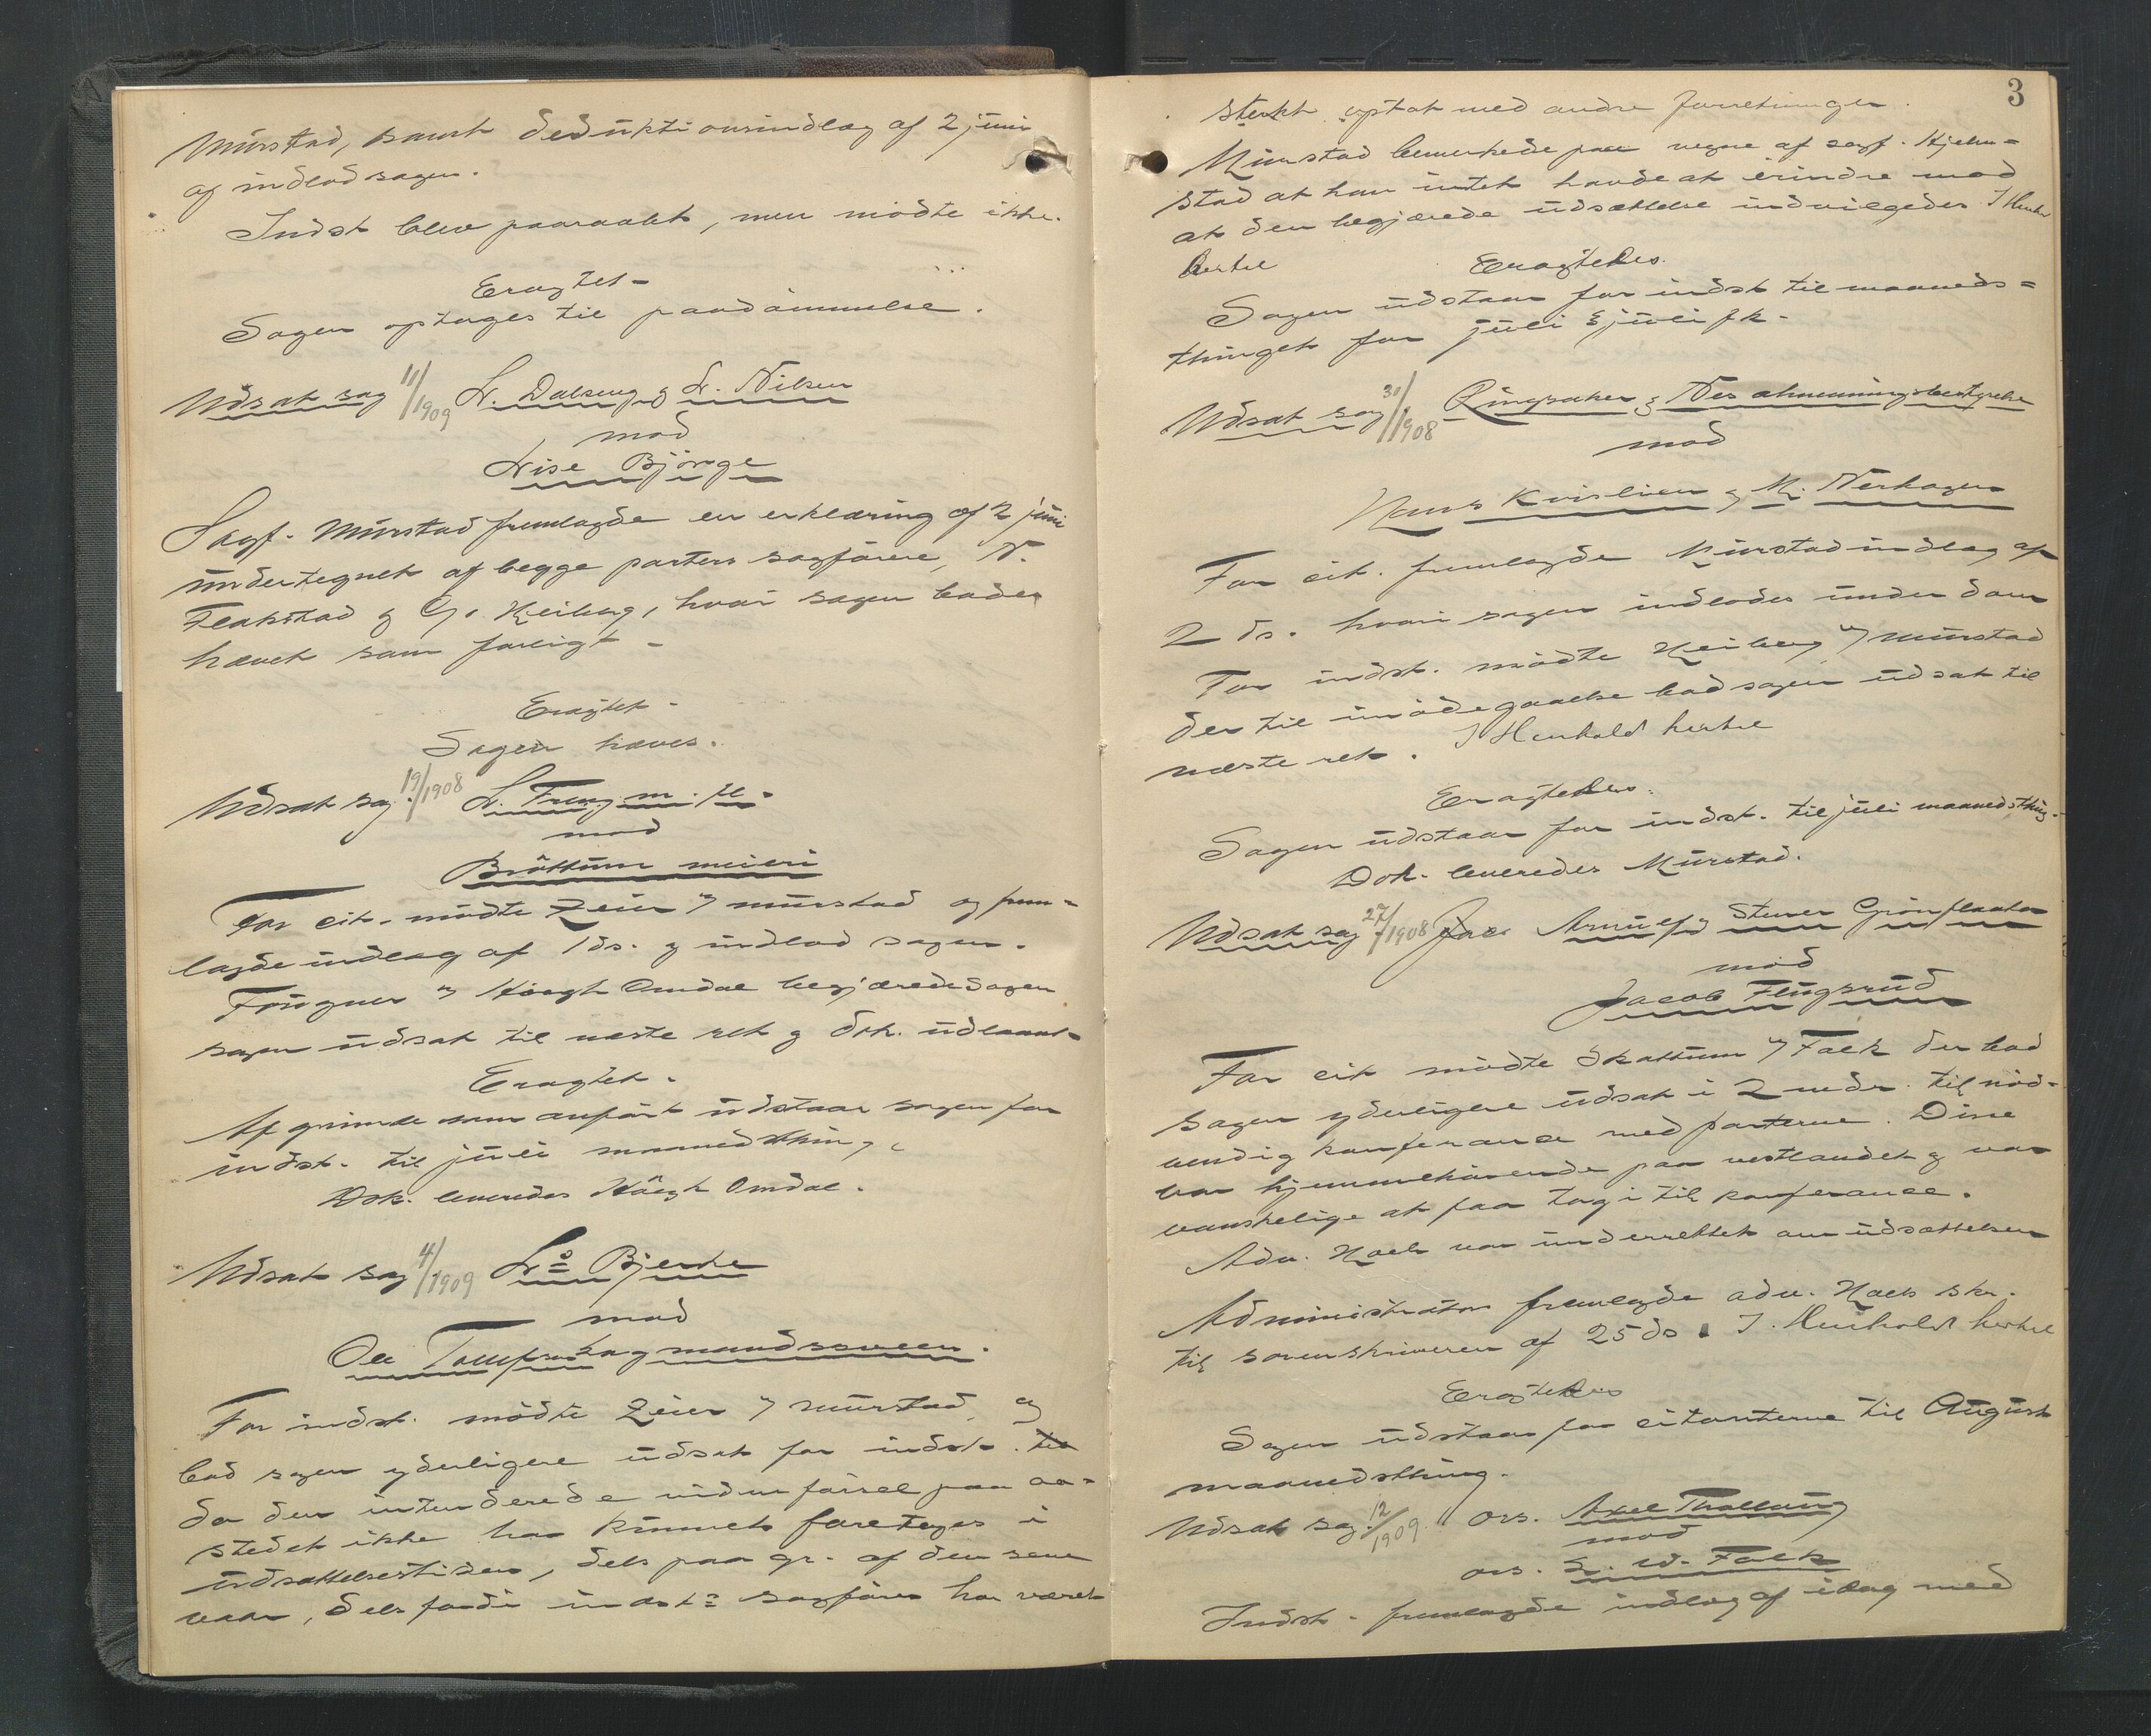 Mürstad, samt deduktionsindlæg af 2 juni
og indlod sagen.
Indst blev paaraabt, men mødte ikke.
Eragtet -
Sagen optages til paadømmelse.
Udsat sag 11/1909 L. Dalseng og L. Nilsen
mod
Lise Bjørge
Sagf. Mürstad fremlagde en erklæring af 2 juni
undertegnet af begge parters sagførere, N.
Flakstad og G. Heiberg, hvori sagen bades
hævet som forligt -
Eragtet -
Sagen hæves.
Udsat sag 19/1908 L. Freng m. fl.
mod
Brøttum meieri
For cit. mødte Zeier v/ Mürstad og frem-
lagde indlæg af 1 ds. og indlod sagen.
Fougner v/ Høegh Omdal begjærede sagen
sagen udsat til næste ret og dok. udlaant -
Eragtet.
Af grunde som anført udstaar sagen for
indst. til juli maanedsthing.
Dok. leveredes Høegh Omdal.
Udsat sag 4/1909 Ls Bjerke
mod
Ole Haugmandssveen.
For indst. mødte Zeier v/ Mürstad, og
bad sagen yderligere udsat for indst. til
da den intenderede vidneførsel paa aa-
stedet ikke har kunnet foretages i
udsættelsestiden, dels paa gr. af den sene
vaar, dels fordi indsts sagfører har været
3
sterkt optat med andre forretninger.
Mürstad bemerkede paa vegne af sagf. Hjelm-
stad at han intet havde at erindre mod
at den begjærede udsættelse indvilgedes I Henh
hertil
Eragtedes.
Sagen udstaar for indst til maaneds-
thinget for juli juli fk.
Udsat sag 30/1908 Ringsaker og Nes almenningsbestyrelse
mod
Hans Kvisliien og M. Nerhagen
For cit. fremlagde Mürstad indlæg af
2 ds. hvori sagen indlodes under dom
For indst. mødte Heiberg v/ Mürstad
der til imødegaaelse bad sagen udsat til
næste ret. I Henhold hertil
Eragtedes.
Sagen udstaar for indst. til juli maanedsthing.
Dok. leveredes Mürstad.
Udsat sag 27/1908 Arnulf og Sturer Grønflaaten
mod
Jacob Flugsrud
For cit mødte Skattum v/ Falk der bad
sagen yderligere udsat i 2 mdr. til nød-
vendig konferance med parterne. Disse
var hjemmehørende paa vestlandet og var
vanskelige at faa tag i til konferance.
Adv. Hoels var underrettet om udsættelsen
Administrator fremlagde adv. Hoels skr.
til sorenskriveren af 25 ds. I. Henhold hertil
Eragtedes
Sagen udstaar for citanterne til August
maanedsthing.
Udsat sag 12/1909 ors. Axel Thallaug
mod
ors. L. W. Falk
Indst. fremlagde indlæg af idag med